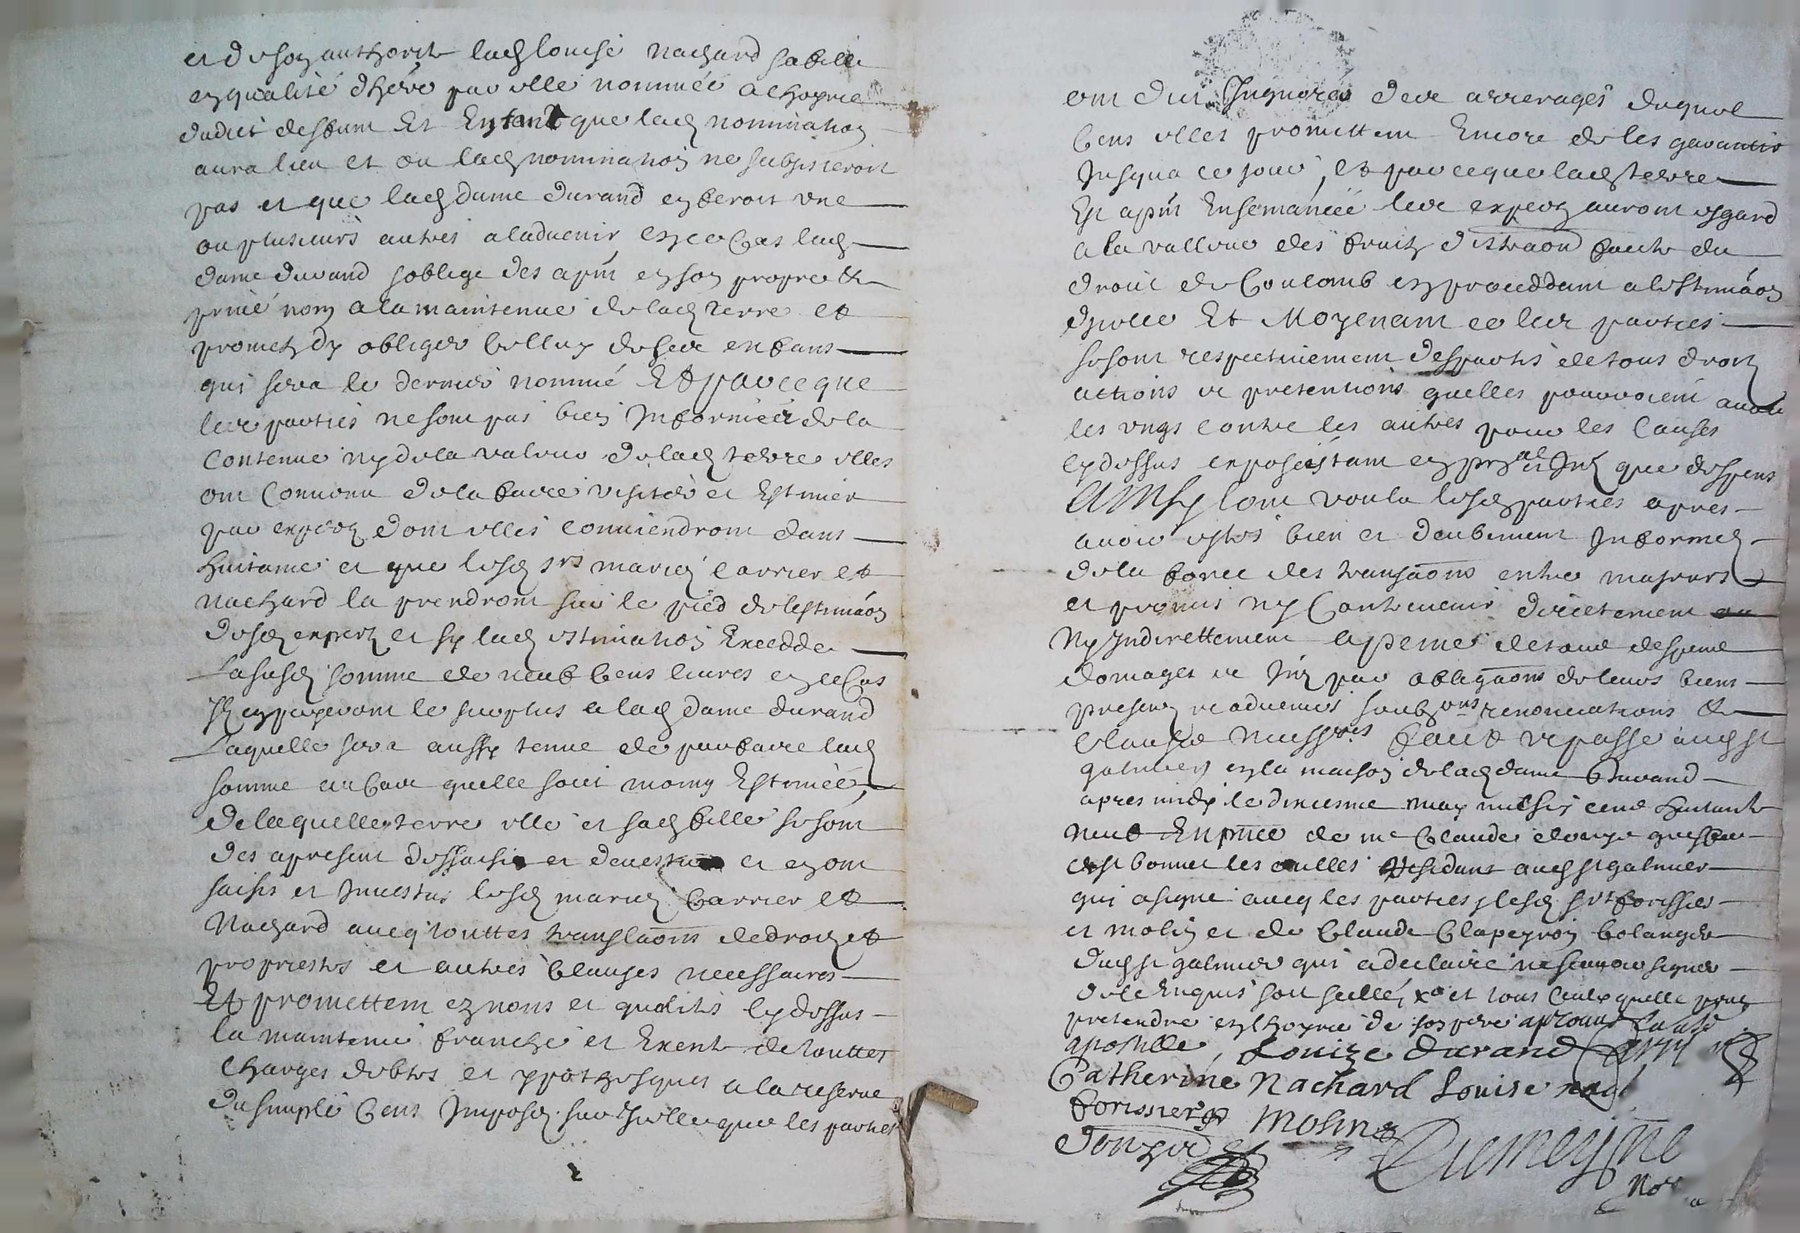 et de son authorité lad louise nachard sa fille
en qualité dhere par elle nommée a lhoyrie
dudict deffunt Et Entant que lad nomination
aura lieu et ou lad nomination ne subsisteroit
pas et que lad dame durand en feroit une
ou plusieurs autres a ladvenir en ce cas lad
dame durand soblige des a pnt en son propre et
privé nom a la maintenue de lad terre et
promet dy obliger celluy de ses enfans
qui sera le dernier nommé Et parce que
les parties ne sont pas bien Informées de la
contenue ny de la valeur de lad terre elles
ont convenu de la faire visiter et Estimer
par expertz dont elles conviendront dans
huitaine et que lesd srs mariez carrier et
nachard la prendront sur le pied de lestimaon
desd expertz et sy lad estimation Excedde
La susd somme de neuf cens livres en ce cas
Ilz en payeront le surplus a lad dame durand
Laquelle sera aussy tenue de parfaire lad
somme au cas quelle soit moins Estimée
de laquelle terre elle et sad fille se sont
des a present dessaisie et devestue et en ont
saisis et Investus lesd mariez Carrier et
Nachard avecq touttes translaons de droitz et
proprietes et autres clauses necessaires
Et promettent ez noms et qualités cy dessus
la maintenir franche et Exente de touttes
charges debtes et ypotheques a la reserve
du simple cens Imposé sur Icelle que les parties
ont dit Ingnorer des arrerages duquel
cens elles promettent Encore de les garantir
Jusqua ce jour, et parce que lad terre
Est a pnt Ensemancée les expertz auront esgard
a la valleur des fruitz distraon faicte du
droit de Coulomb en proceddant a lestimaon
dicelle Et Moyenant ce les parties
se sont respectivement despartis de tous droitz
actions et pretentions quelles pourroient avoir
les ungs contre les autres pour les causes
cy dessus exposées tant en prinal Intz que despens
Ainsy lont voulu lesd parties apres
avoir estes bien et deubement Informez
de la force des transaons entre majeurs
et promis ny Contrevenir directement ou
Ny Indirettement a peine de tous despens
domages et Intz par obligaons de leurs biens
presens et advenir soubz ons renonciations et
clauses necessres faict et passé aud st
galmier en la maison de lad dame Durand
apres midy le dixiesme may mil six cens huitante
neuf En pnce de me Claude donzy greffier
de st bonnet les oulles residant aud st galmier
qui a signé avecq les parties lesd srs forissier
et molin et de Claude Clapeyron bolanger
dud st galmier qui a declairé ne sçavoir signer
de ce Enquis soit scellé, xo et tous ceulx quelle peut
pretendre en lhoyrie de son pere aprouvé
apostille, Louize durand Carrier
Catherine Nachard Louise nach
forissier Molin
donzy Dumeynne
Nore